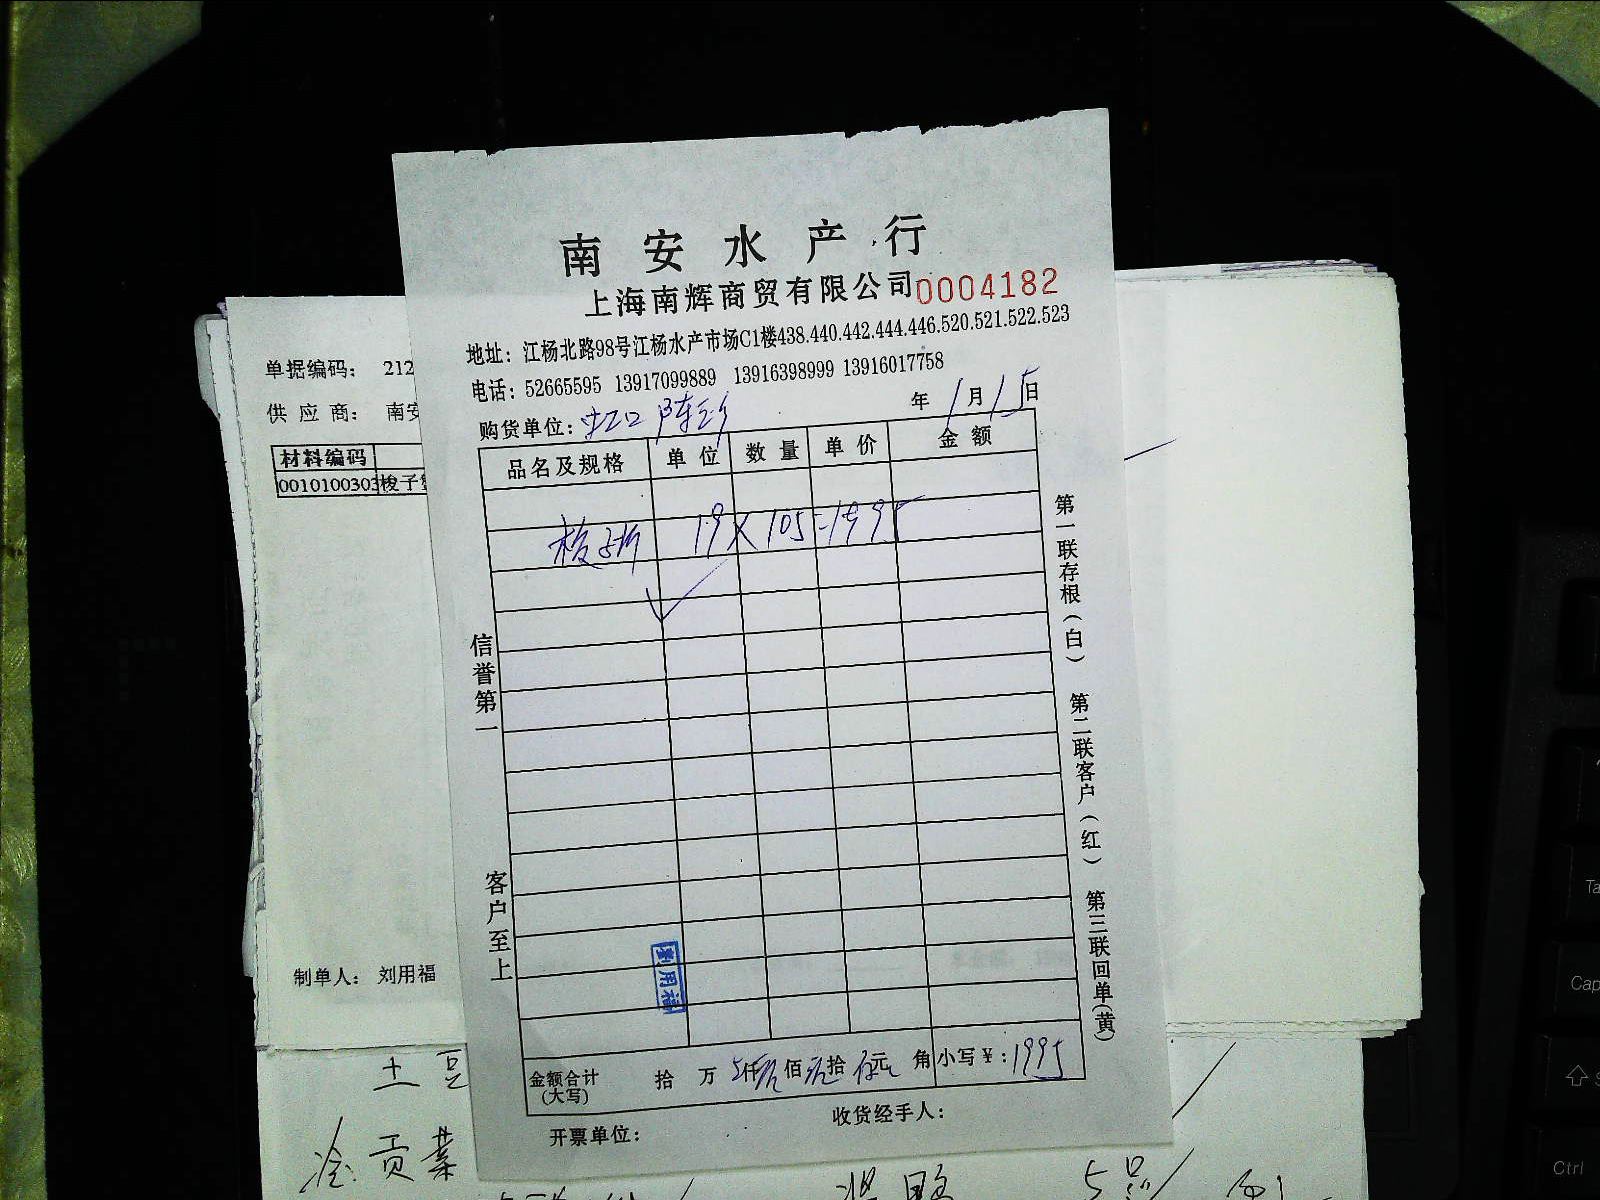 南安水产行
上海南辉商贸有限公司 0004182
地址：江杨北路98号江杨水产市场C1楼438.440.442.444.446.520.521.522.523
电话：52665595 13917099889 13916398999 13916017758
购货单位：虹口 年 1月15日
品名及规格 单位 数量 单价 金额
19×105=1995
信誉第一 客户至上
第一联存根(白) 第二联客户(红) 第三联回单(黄)
刘用福
金额合计(大写) 拾 万 仟 佰 拾 元 角 小写￥：1995
收货经手人：
开票单位：
单据编码： 212
供应商： 南安
材料编码
0010100303 梭子
制单人： 刘用福
土豆
贡菜
Cap
Ctrl